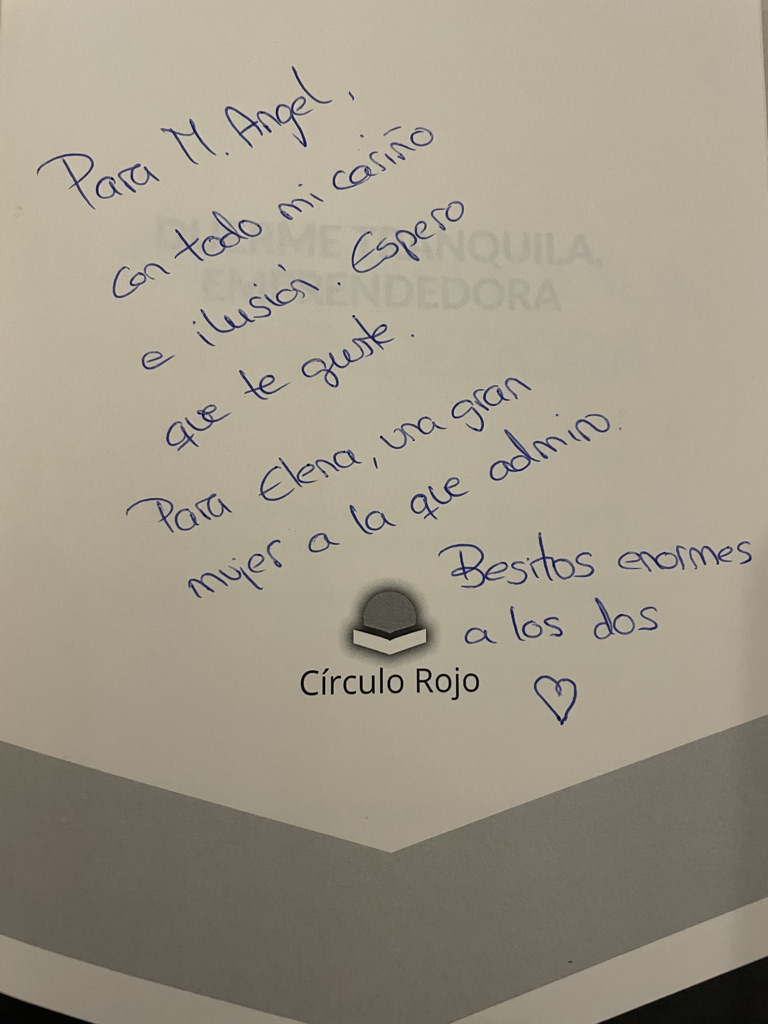 Para M. Angel,
con todo mi cariño
e ilusión. Espero
que te guste.
Para Elena, una gran
mujer a la que admiro.
Besitos enormes
a los dos
Círculo Rojo
DUERME TRANQUILA,
EMPRENDEDORA